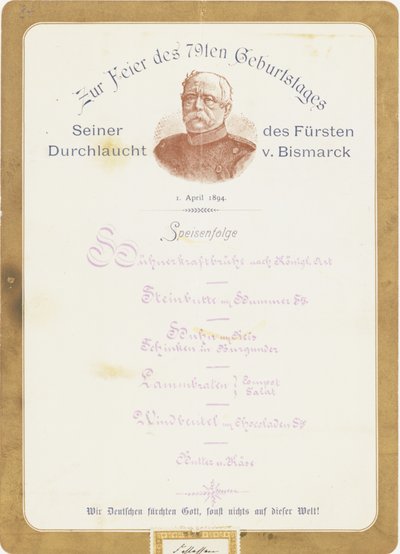 Zur Feier des 79ten Geburtstages
Seiner Durchlaucht
des Fürsten v. Bismarck
1. April 1894.
Speisenfolge
Hühnerkraftbrühe nach Königl. Art
Steinbutte m Hummer
Huhn m Reis
Schinken in Burgunder
Lammbraten Compot
Salat
Windbeutel m Chocoladen
Butter u. Käse
Wir Deutschen fürchten Gott, sonst nichts auf dieser Welt!